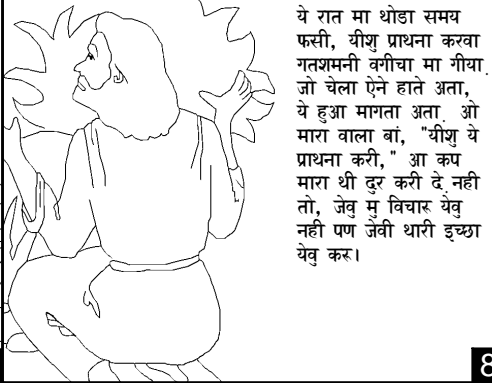 ये रात मा थोडा समय
फसी, यीशु प्राथना करवा
गतशमनी वगीचा मा गीया.
जो चेला ऐने हाते अता,
ये हुआ मागता अता. ओ
मारा वाला बां, "यीशु ये
प्राथना करी," आ कप
मारा थी दुर करी दे.नही
तो, जेवु मु विचारू येवु
नही पण जेवी थारी इच्छा
येवु करू।
8